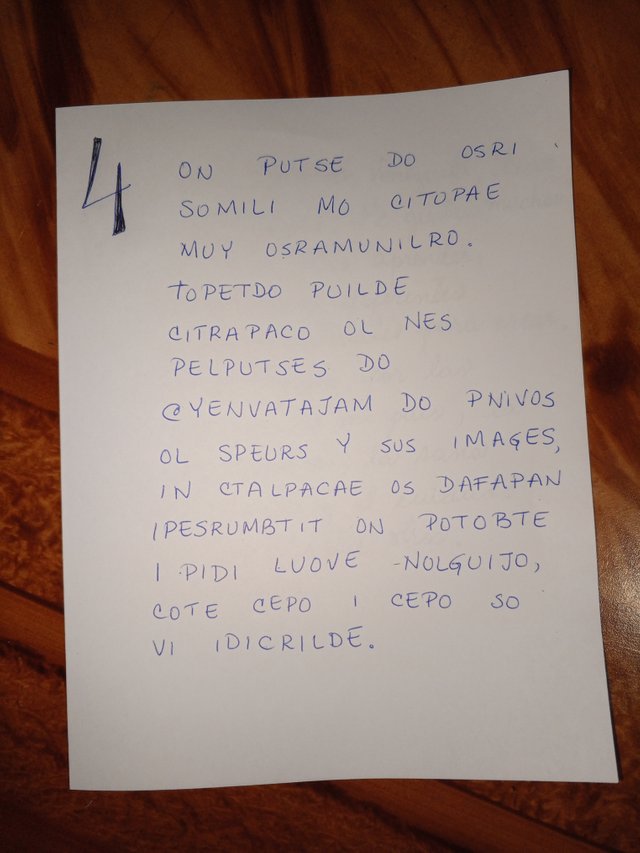 4
ON PUTSE DO OSRI
SOMILI MO CITOPAE
MUY OSRAMUNILRO.
TOPETDO PUILDE
CITRAPACO OL NES
PELPUTSES DO
@YENVATAJAM DO PNIVOS
OL SPEURS Y SUS IMAGES,
IN CTALPACAE OS DAFAPAN
IPESRUMBTIT ON POTOBTE
I PIDI LUOVE -NOLGUIJO,
COTE CEPO I CEPO SO
VI IDICRILDE.